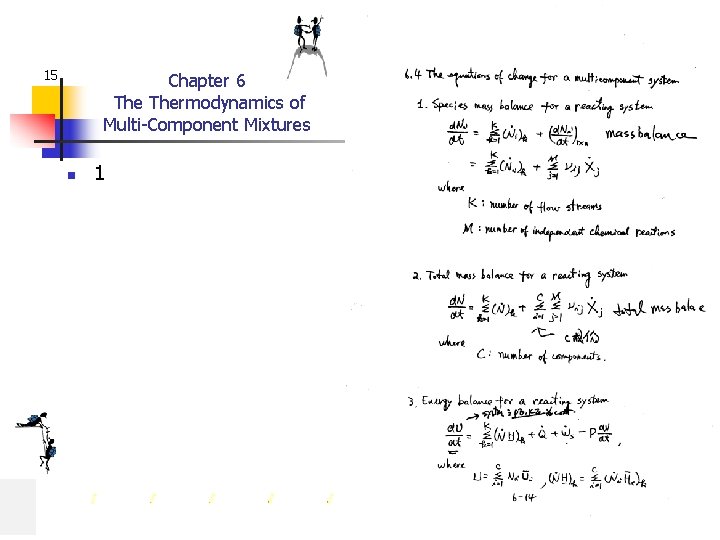 15
Chapter 6
The Thermodynamics of
Multi-Component Mixtures
1
6.4 The equations of change for a multicomponent system
1. Species mass balance for a reacting system
dNi/dt = Σ_{k=1}^{K} (Ṅi)k + (dNi/dt)rxn mass balance
= Σ_{k=1}^{K} (Ṅi)k + Σ_{j=1}^{M} νij Ẋj
where
K : number of flow streams
M : number of independent chemical reactions
2. Total mass balance for a reacting system
dN/dt = Σ_{k=1}^{K} (Ṅ)k + Σ_{i=1}^{C} Σ_{j=1}^{M} νij Ẋj total mass balance
where
C : number of components.
3. Energy balance for a reacting system
dU/dt = Σ_{k=1}^{K} (ṄH)k + Q̇ + Ẇs − P dV/dt,
where
U = Σ_{i=1}^{C} Ni Ūi, (ṄH)k = Σ_{i=1}^{C} (Ṅi H̄i)k
6-14